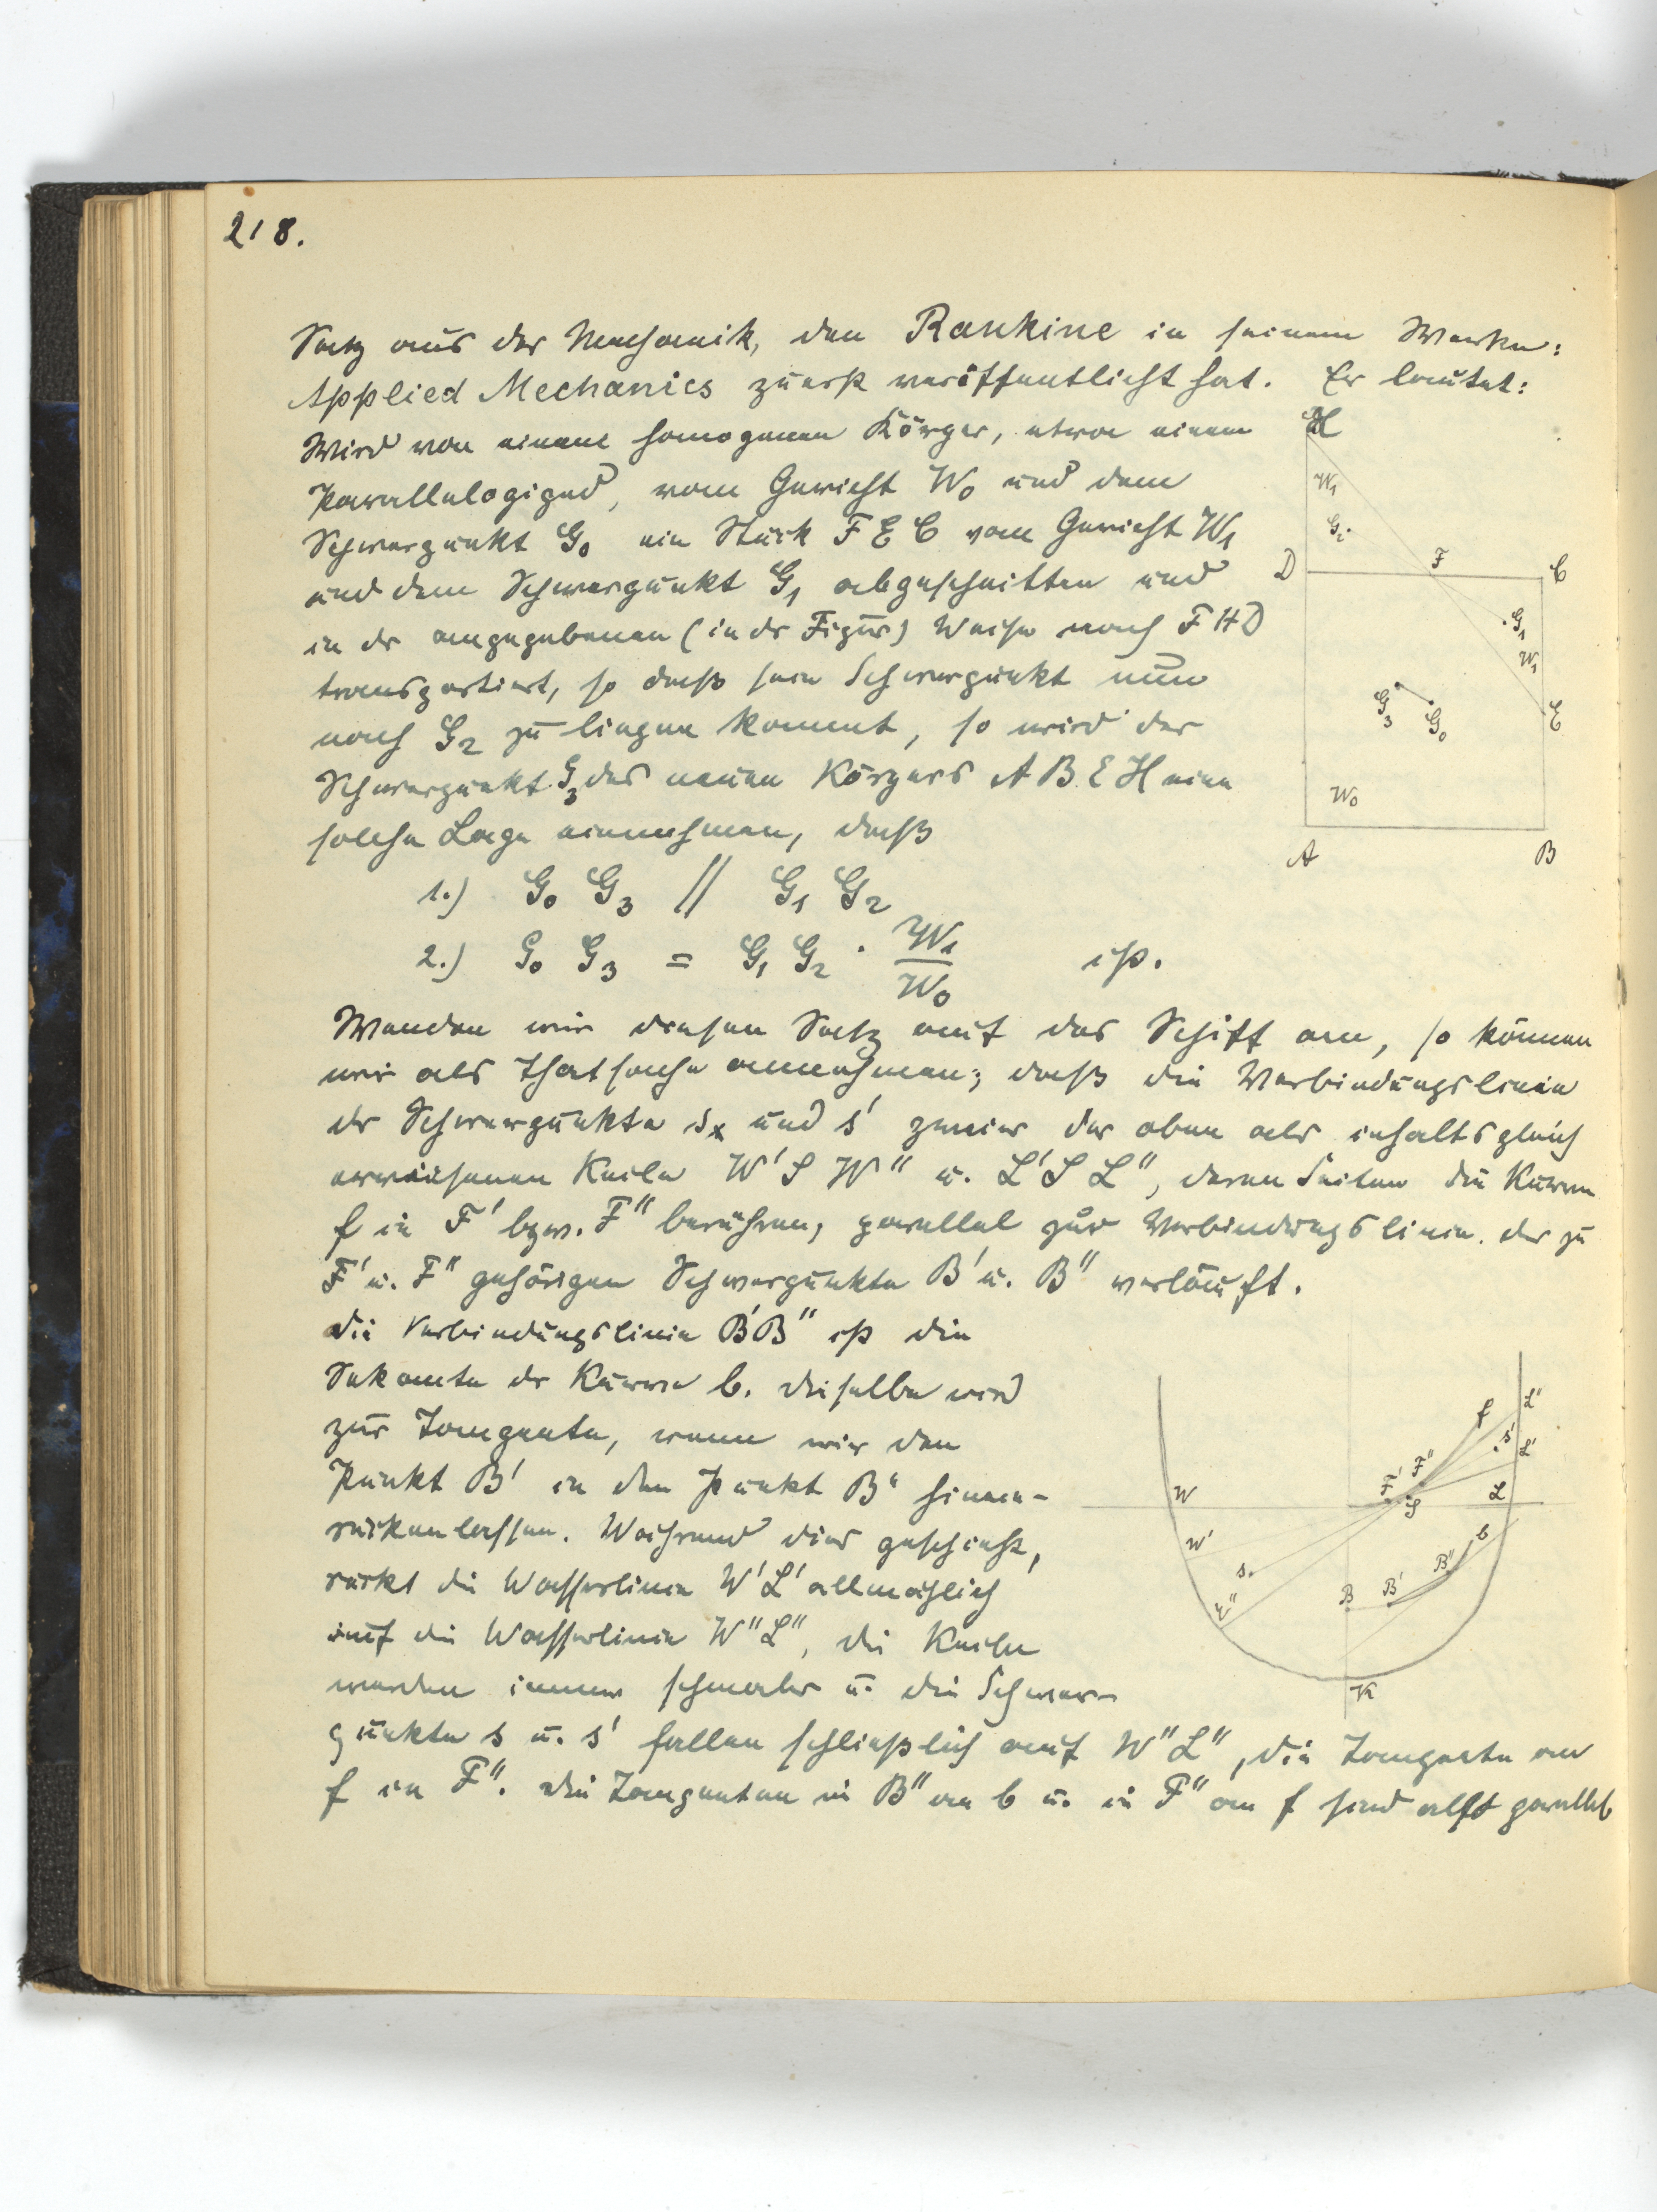 218.
Satz aus der Mechanik, den Rankine in seinem Werke:
Applied Mechanics zuerst veröffentlicht hat. Er lautet:
Wird von einem homogenen Körper, etwa einem
Parallelogiped, vom Gewicht W₀ und dem
Schwerpunkt G₀ ein Stück F E C vom Gewicht W₁
und dem Schwerpunkt G₁ abgeschnitten und
in dr angegebenen (in dr Figur) Weise nach F H D
transportiert, so daß sein Schwerpunkt nun
nach G₂ zu liegen kommt, so wird der
Schwerpunkt G₃ des neuen Körpers A B E H eine
solche Lage einnehmen, daß
1.) G₀ G₃ // G₁ G₂
2.) G₀ G₃ = G₁ G₂ · W₁/W₀ ist.
H
W₁
G₂
D
F
C
G₁
W₁
G₃
G₀
E
W₀
A
B
Wenden wir diesen Satz auf das Schiff an, so können
wir als Thatsache annehmen; daß die Verbindungslinie
dr Schwerpunkte sₓ und s' zweier der oben als inhaltsgleich
erwiesenen Keile W' S W" u. L' S L", deren Seiten die Kurve
f in F' bzw. F" berühren, parallel zur Verbindungslinie der zu
F' u. F" gehörigen Schwerpunkte B' u. B" verläuft.
Die Verbindungslinie B'B" ist die
Sekante dr Kurve b. Dieselbe wird
zur Tangente, wenn wir den
Punkt B' in den Punkt B" hinein-
rücken lassen. Während dies geschieht,
rückt die Wasserlinie W'L' allmählich
auf die Wasserlinie W"L", die Keile
werden immer schmaler u. die Schwer-
punkte s u. s' fallen schließlich auf W"L", die Tangente an
f in F". Die Tangenten in B" an b u. in F" an f sind also parallel
f
L"
s'
L'
F"
F'
S
L
W
W'
s.
W"
b
B"
B'
B
K